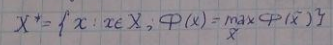 X* = { x : x ∈ X ; Φ(x) = max Φ(x̄) }
X̄